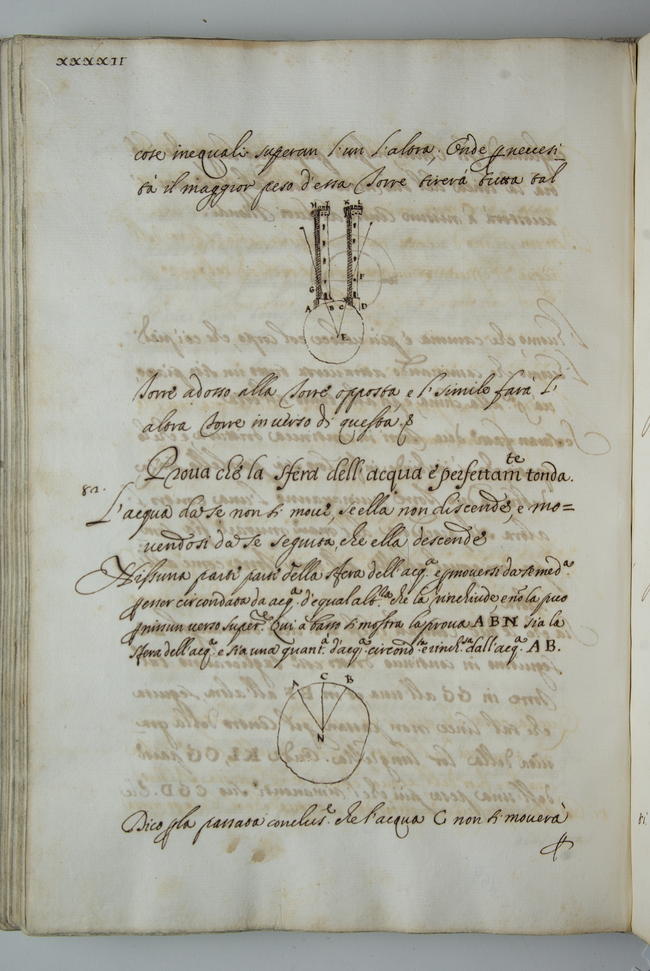 XXXXII
cose inequali superan l'un l'altra; Onde p necessi_
tà il maggior peso d'essa Torre tirerà tutta tal
A B C D
E
F
G
Torre adosso alla Torre opposta e l' simile farà l'
altra Torre in verso di questa.
Prova che la sfera dell' acqua è perfettamte tonda.
82.
L'acqua da se non si move, se ella non discende, e mo=
vendosi da se seguita, che ella descende
Nissuna parti parti della sfera dell' acqa. e p moversi da se meda.
p esser circondata da acqa. d'egual altza. che la rinchiude e nō la può
p nissun verso superre. Qui a basso si mostra la prova ABN sia la
sfera dell' acqa. e sia una quanta. d'acqa. circonda. e rinchsa. dall' acqa. AB.
A C B
N
Dico p la passata conclusne. che l'acqua C non si moverà